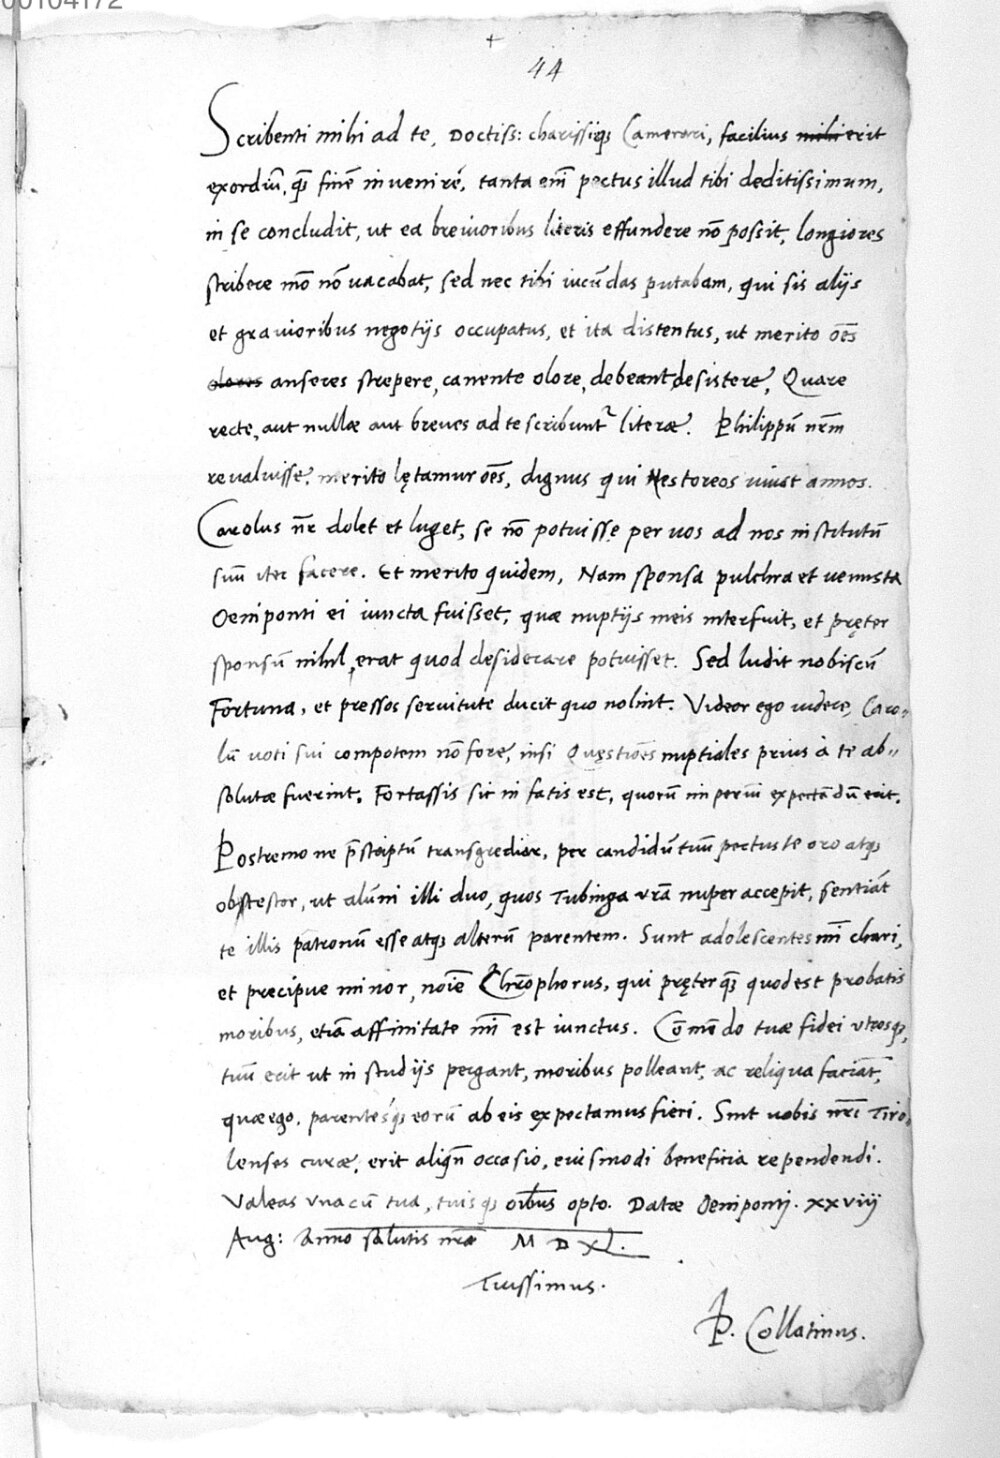 00104172
+
44
Scribenti mihi ad te, Doctiss: charissiq̃ Camerari, facilius mihi erit
exordiũ, q̃ finẽ invenirẽ, tanta em̃ pectus illud tibi deditissimum,
in se concludit, ut ea brevioribus literis effundere nõ possit, longiores
scribere mõ nõ vacabat, sed nec tibi iucũdas putabam, qui sis alijs
et gravioribus negotijs occupatus, et ita distentus, ut merito oẽs
olores anseres strepere, canente olore, debeant desistere, Quare
recte, aut nullæ aut breves ad te scribunt᷑ literæ. Philippũ nr̃m
revaluisse, merito lętamur oẽs, dignus qui Nestoreos vivat annos.
Carolus nr̃ dolet et luget, se nõ potuisse per vos ad nos institutũ
suũ iter facere. Et merito quidem, Nam sponsa pulchra et venusta
Oeniponti ei iuncta fuisset, quæ nuptijs meis interfuit, et pręter
sponsũ nihil, erat quod desiderare potuisset. Sed ludit nobiscũ
Fortuna, et pressos servitute ducit quo nolint. Videor ego videre, Caro-
lũ voti sui compotem nõ fore, nisi Quęstiões nuptiales prius à te ab-
solutæ fuerint. Fortassis sic in fatis est, quorũ imperiũ expectãdũ erit.
Postremo ne p̃scriptũ transgrediar, per candidũ tuũ pectus te oro atq̃
obtestor, ut alũni illi duo, quos Tubinga vr̃a nuper accepit, sentiãt
te illis patronũ esse atq̃ alterũ parentem. Sunt adolescentes mĩ chari,
et precipue minor, noĩe Chrõphorus, qui pręterq̃ quod est probatis
moribus, etiã affinitate mĩ est iunctus. Cõmẽdo tuæ fidei utrosq̃,
tuũ erit ut in studijs pergant, moribus polleant, ac reliqua faciãt,
quæ ego, parentesq̃ eorũ ab eis expectamus fieri. Sint vobis nr̃i Tiro-
lenses curæ, erit aliqñ occasio, eiusmodi beneficia rependendi.
Valeas vna cũ tua, tuisq̃ oĩbus opto. Datæ Oeniponti. xxviij
Aug: Anno salutis nr̃æ M D XL.
Tuissimus.
P. Collatinus.